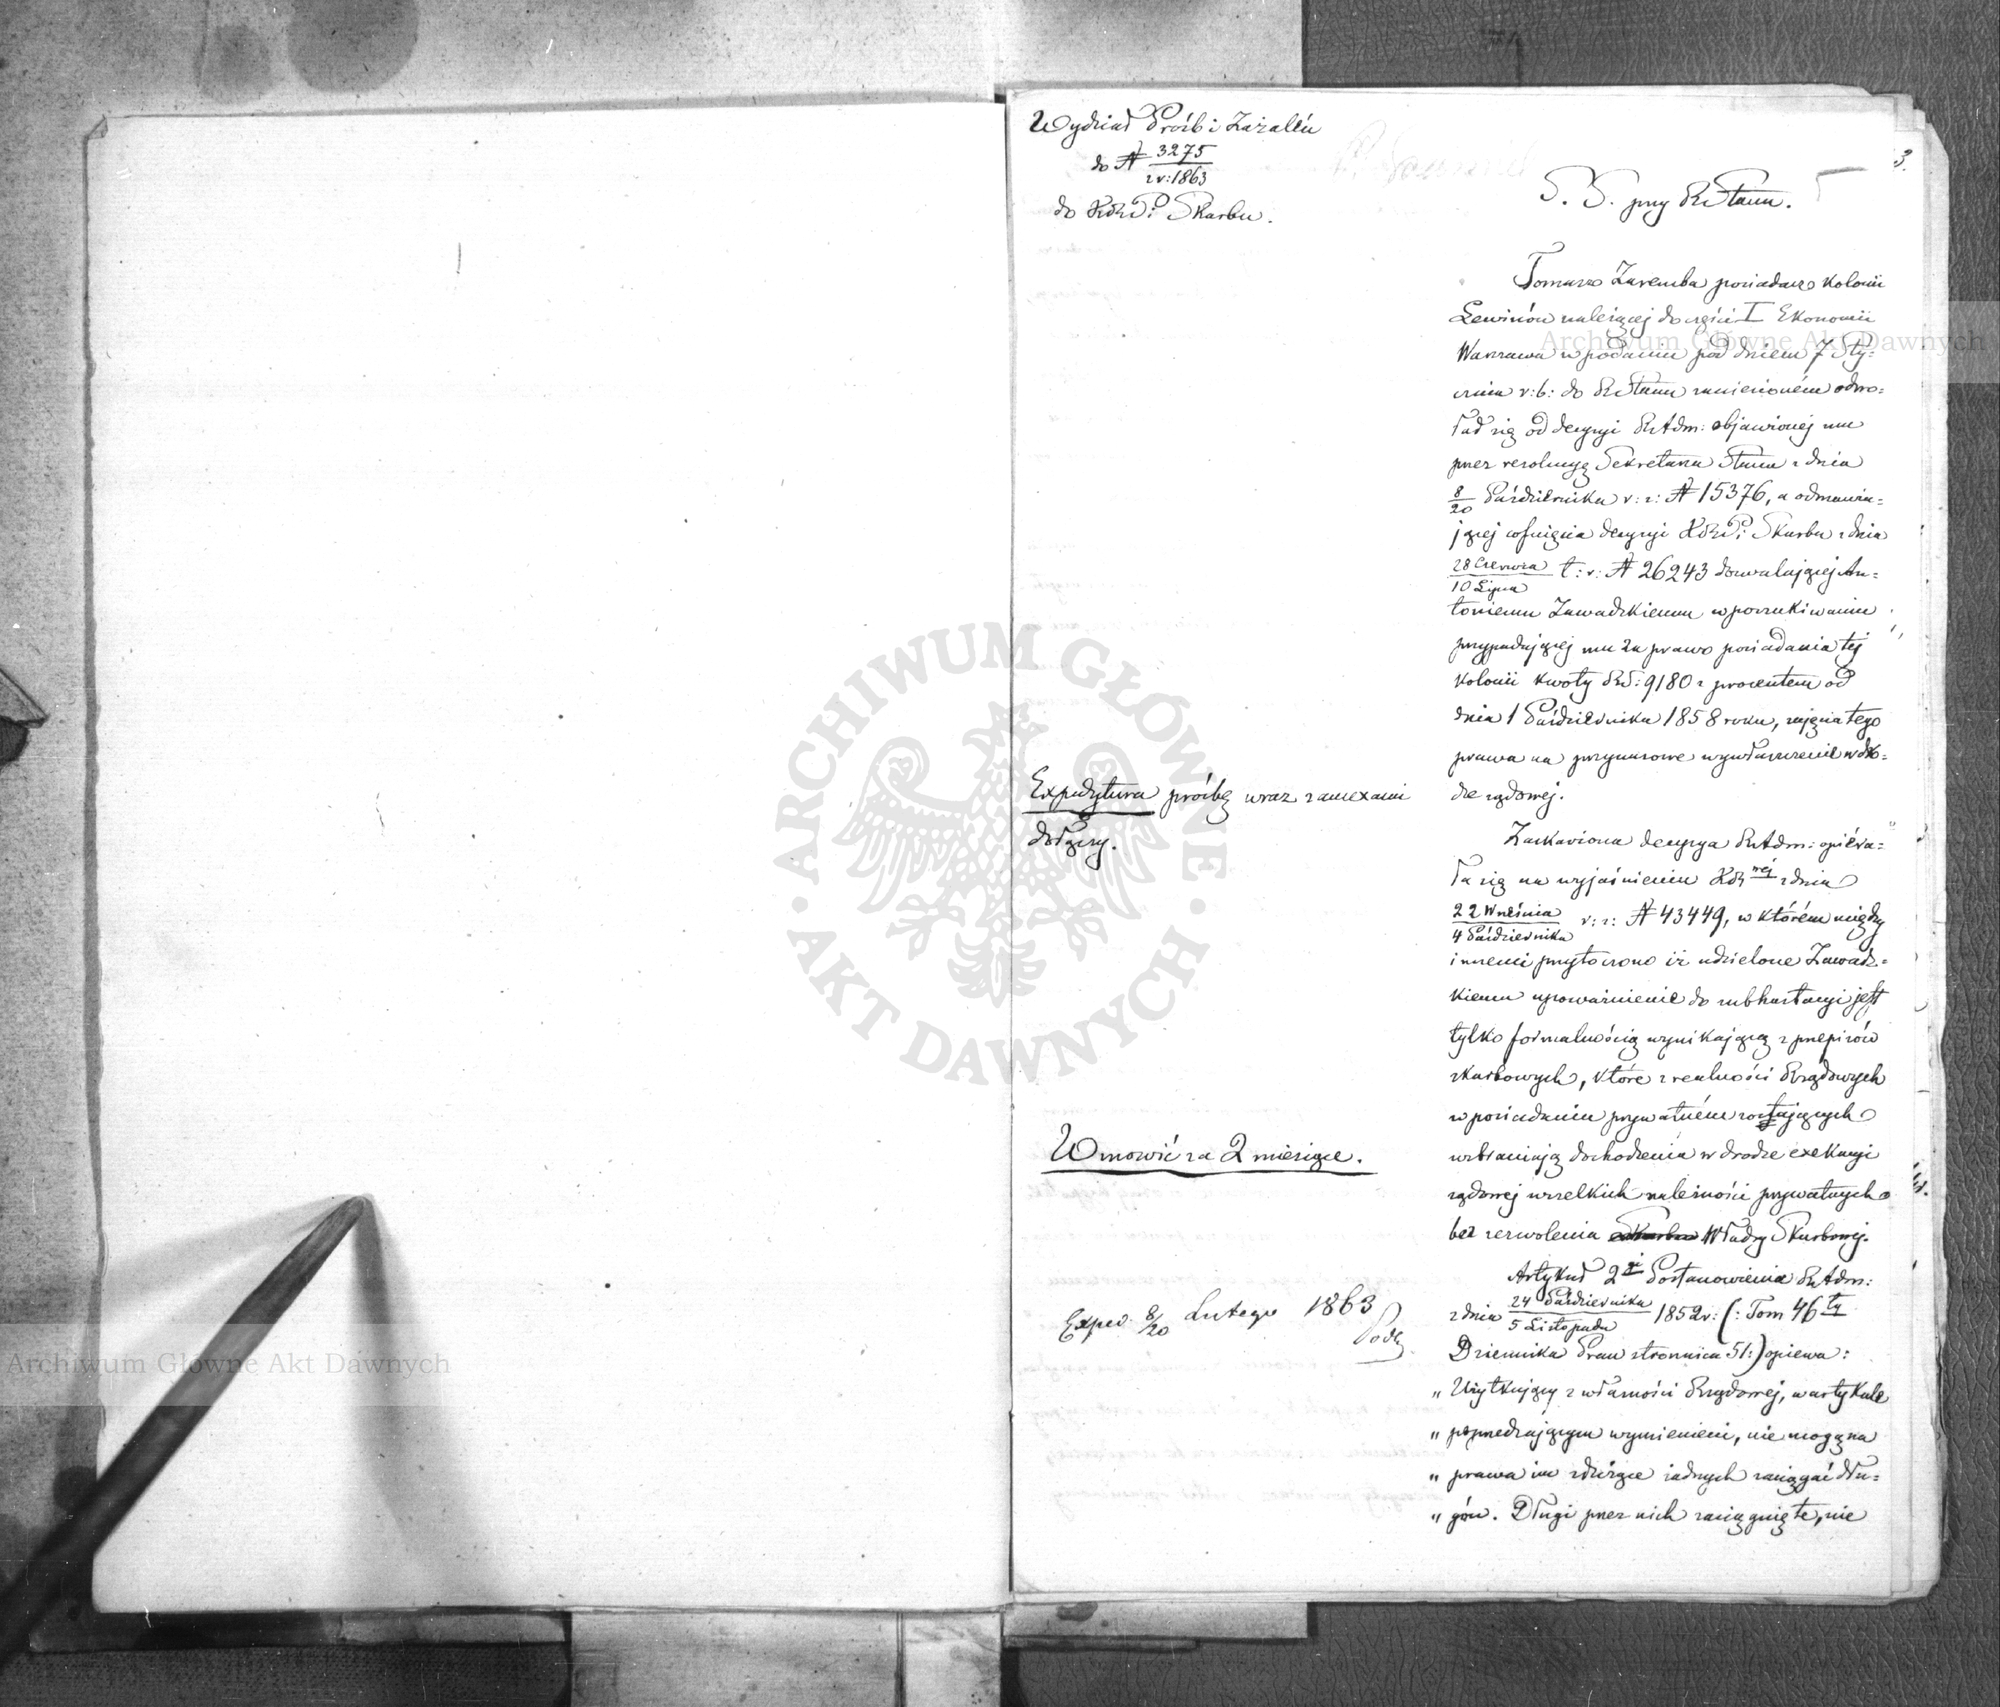 Wydział Próśb i Zażaleń
do № 3275
z r: 1863
do KRzP: Skarbu.
Expedytura próśbę wraz z annexami
dołączy.
Wmówić za 2 miesiące.
Exped: 8/20 Lutego 1863
3.
5
S. S. przy RStanu.
Tomasz Zaremba posiadacz kolonii
Lewinów należącej do części I Ekonomii
Warszawa w podaniu pod dniem 7 Sty=
cznia r: b: do RStanu zaniesioném odwo=
łał się od decyzyi RAdm: objawionej mu
przez rezolucyę Sekretarza Stanu z dnia
8/20 Października r: z: № 15376, a odmawia=
jącej cofnięcia decyzyi KRzP: Skarbu z dnia
28 Czerwca
10 Lipca t: r: № 26243 dozwalającej An=
toniemu Zawadzkiemu w poszukiwaniu
przypadającej mu za prawo posiadania tej
kolonii kwoty RS: 9180 z procentem od
dnia 1 Października 1858 roku, zajęcia tego
prawa na przymusowe wywłaszczenie w dro=
dze sądowej.
Zaskarżona decyzya RAdm: opiéra=
ła się na wyjaśnieniu KRz wéj z dnia
22 Września
4 Października r: z: № 43449, w którém między
innemi przytoczono iż udzielone Zawadz=
kiemu upoważnienie do subhastacyi jest
tylko formalnością wynikającą z przepisów
skarbowych, które z realności Rządowych
w posiadaniu prywatném zostających
wzbraniają dochodzenia w drodze exekucyi
sądowej wszelkich należności prywatnych
bez zezwolenia Władzy Skarbowej.
Artykuł 2gi Postanowienia RAdm:
z dnia 24 Października
5 Listopada 1852 r: (: Tom 46ty
Dziennika Praw stronnica 51:) opiewa:
„ Użytkujący z własności Rządowej, w artykule
„ poprzedzającym wymienieni, nie mogą na
„ prawa im służące żadnych zaciągać dłu=
„ gów. Długi przez nich zaciągnięte, nie
ARCHIWUM GŁÓWNE
AKT DAWNYCH
Archiwum Główne Akt Dawnych
Archiwum Główne Akt Dawnych